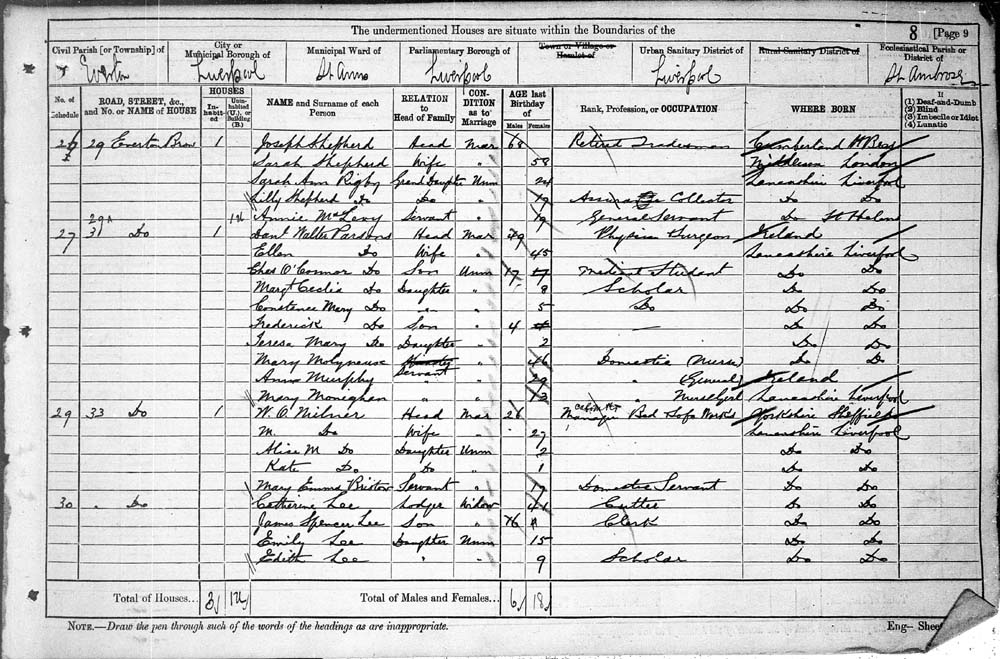 The undermentioned Houses are situate within the Boundaries of the
8 [Page 9
Civil Parish [or Township] of City or Municipal Borough of Municipal Ward of Parliamentary Borough of Town or Village or Hamlet of Urban Sanitary District of Rural Sanitary District of Ecclesiastical Parish or District of
Everton Liverpool St Anns Liverpool Liverpool St Ambrose
No. of Schedule ROAD, STREET, &c., and No. or NAME of HOUSE HOUSES Inhabited Uninhabited (U.), or Building (B.) NAME and Surname of each Person RELATION to Head of Family CONDITION as to Marriage AGE last Birthday of Males Females Rank, Profession, or OCCUPATION WHERE BORN If (1) Deaf-and-Dumb (2) Blind (3) Imbecile or Idiot (4) Lunatic
26 29 Everton Brow 1 Joseph Shepherd Head Mar 68 Retired Tradesman Cumberland
Sarah Shepherd Wife " 58 Middlesex London
Sarah Ann Rigby Grand Daughter Unm 24 Lancashire Liverpool
Lilly Shepherd Do Do " 19 Collector Do Do
29A 1U Annie McLevy Servant " 19 General Servant Do St Helens
27 31 Do 1 Danl Walter Parsons Head Mar 49 Physician Surgeon Ireland
Ellen Do Wife " 45 Lancashire Liverpool
Chas O'Connor Do Son Unm 17 17 Medical Student Do Do
Margt Cecilia Do Daughter " 8 Scholar Do Do
Constance Mary Do " " 5 Do Do Do
Frederick Do Son " 4 4 — Do Do
Teresa Mary Do Daughter " 2 Do Do
Mary Molyneux Servant " 46 Domestic (Nurse) Do Do
Anna Murphy " " 29 " (General) Ireland
Mary Moneghan " " 13 " Nursegirl Lancashire Liverpool
29 33 Do 1 W. O. Milner Head Mar 26 Manager Bed Sofa Works Yorkshire Sheffield
M. Do Wife " 27 Lancashire Liverpool
Alice M Do Daughter Unm 2 Do Do
Kate Do Do " 1 Do Do
Mary Emma Bristow Servant " 17 Domestic Servant Do Do
30 " Do Catherine Lee Lodger Widow 41 Do Do
James Spencer Lee Son " 16 Clerk Do Do
Emily Lee Daughter Unm 15 Do Do
Edith Lee " " 9 Scholar Do Do
Total of Houses... 3 1U Total of Males and Females... 6 18
NOTE.—Draw the pen through such of the words of the headings as are inappropriate.
Eng— Shee